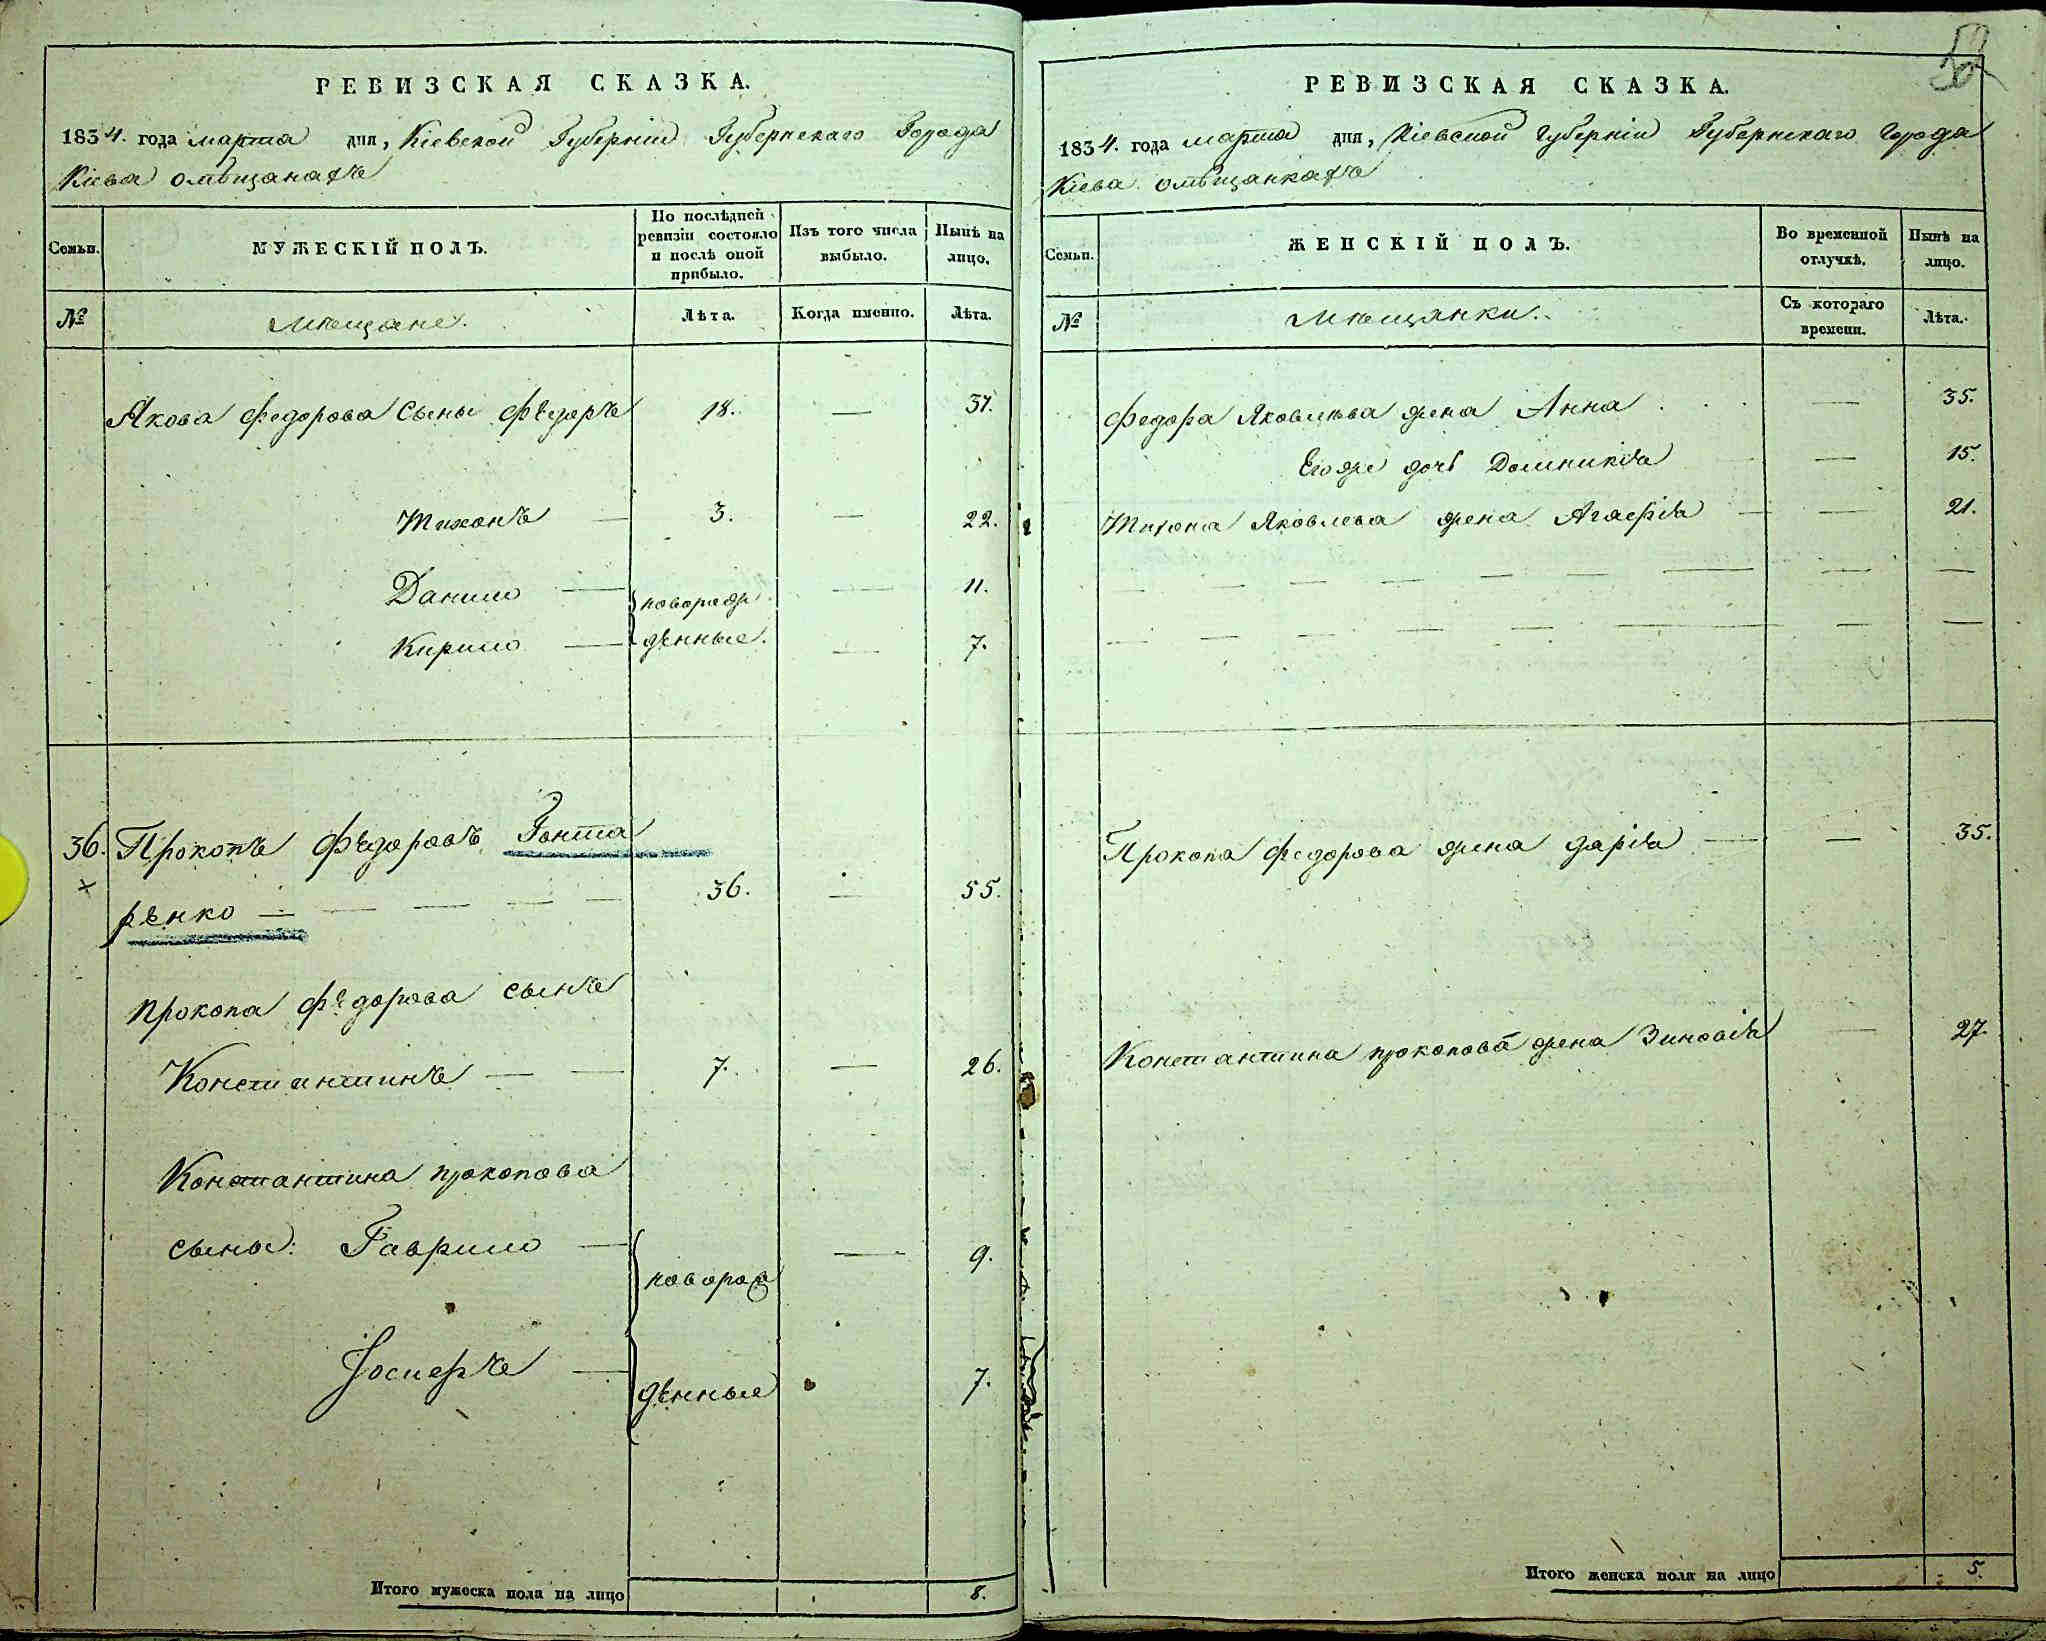 РЕВИЗСКАЯ СКАЗКА.
1834. года марта дня, Кіевской Губерніи Губернскаго Города
Кіева омѣщанахъ
Семьи.
МУЖЕСКІЙ ПОЛЪ.
По послѣдней
ревизіи состояло
и послѣ оной
прибыло.
Изъ того числа
выбыло.
Нынѣ на
лицо.
№
Мѣщане.
Лѣта.
Когда именно.
Лѣта.
Якова Федорова Сыны Федоръ 18. — 37.
Тихонъ — 3. — 22.
Данило — новорож — 11.
Кирило — денные. — 7.
36. Прокопъ Федоровъ Гонта
ренко — — — — — 36. — 55.
Прокопа Федорова сынъ
Константинъ — — 7. — 26.
Константина прокопова
сыны: Гаврило — — 9.
новорож
Іосифъ — денные 7.
Итого мужеска пола на лицо 8.
52
РЕВИЗСКАЯ СКАЗКА.
1834. года марта дня, Кіевской Губерніи Губернскаго Города
Кіева омѣщанкахъ
Семьи.
ЖЕНСКІЙ ПОЛЪ.
Во временной
отлучкѣ.
Нынѣ на
лицо.
№
Мѣщанки.
Съ котораго
времени.
Лѣта.
Федора Яковлева жена Анна — 35.
Егоже дочь Доминикія — 15.
Тихона Яковлева жена Агафія — — 21.
Прокопа Федорова жена Дарія — — 35.
Константина прокопова жена Зиновія — 27.
Итого женска пола на лицо 5.